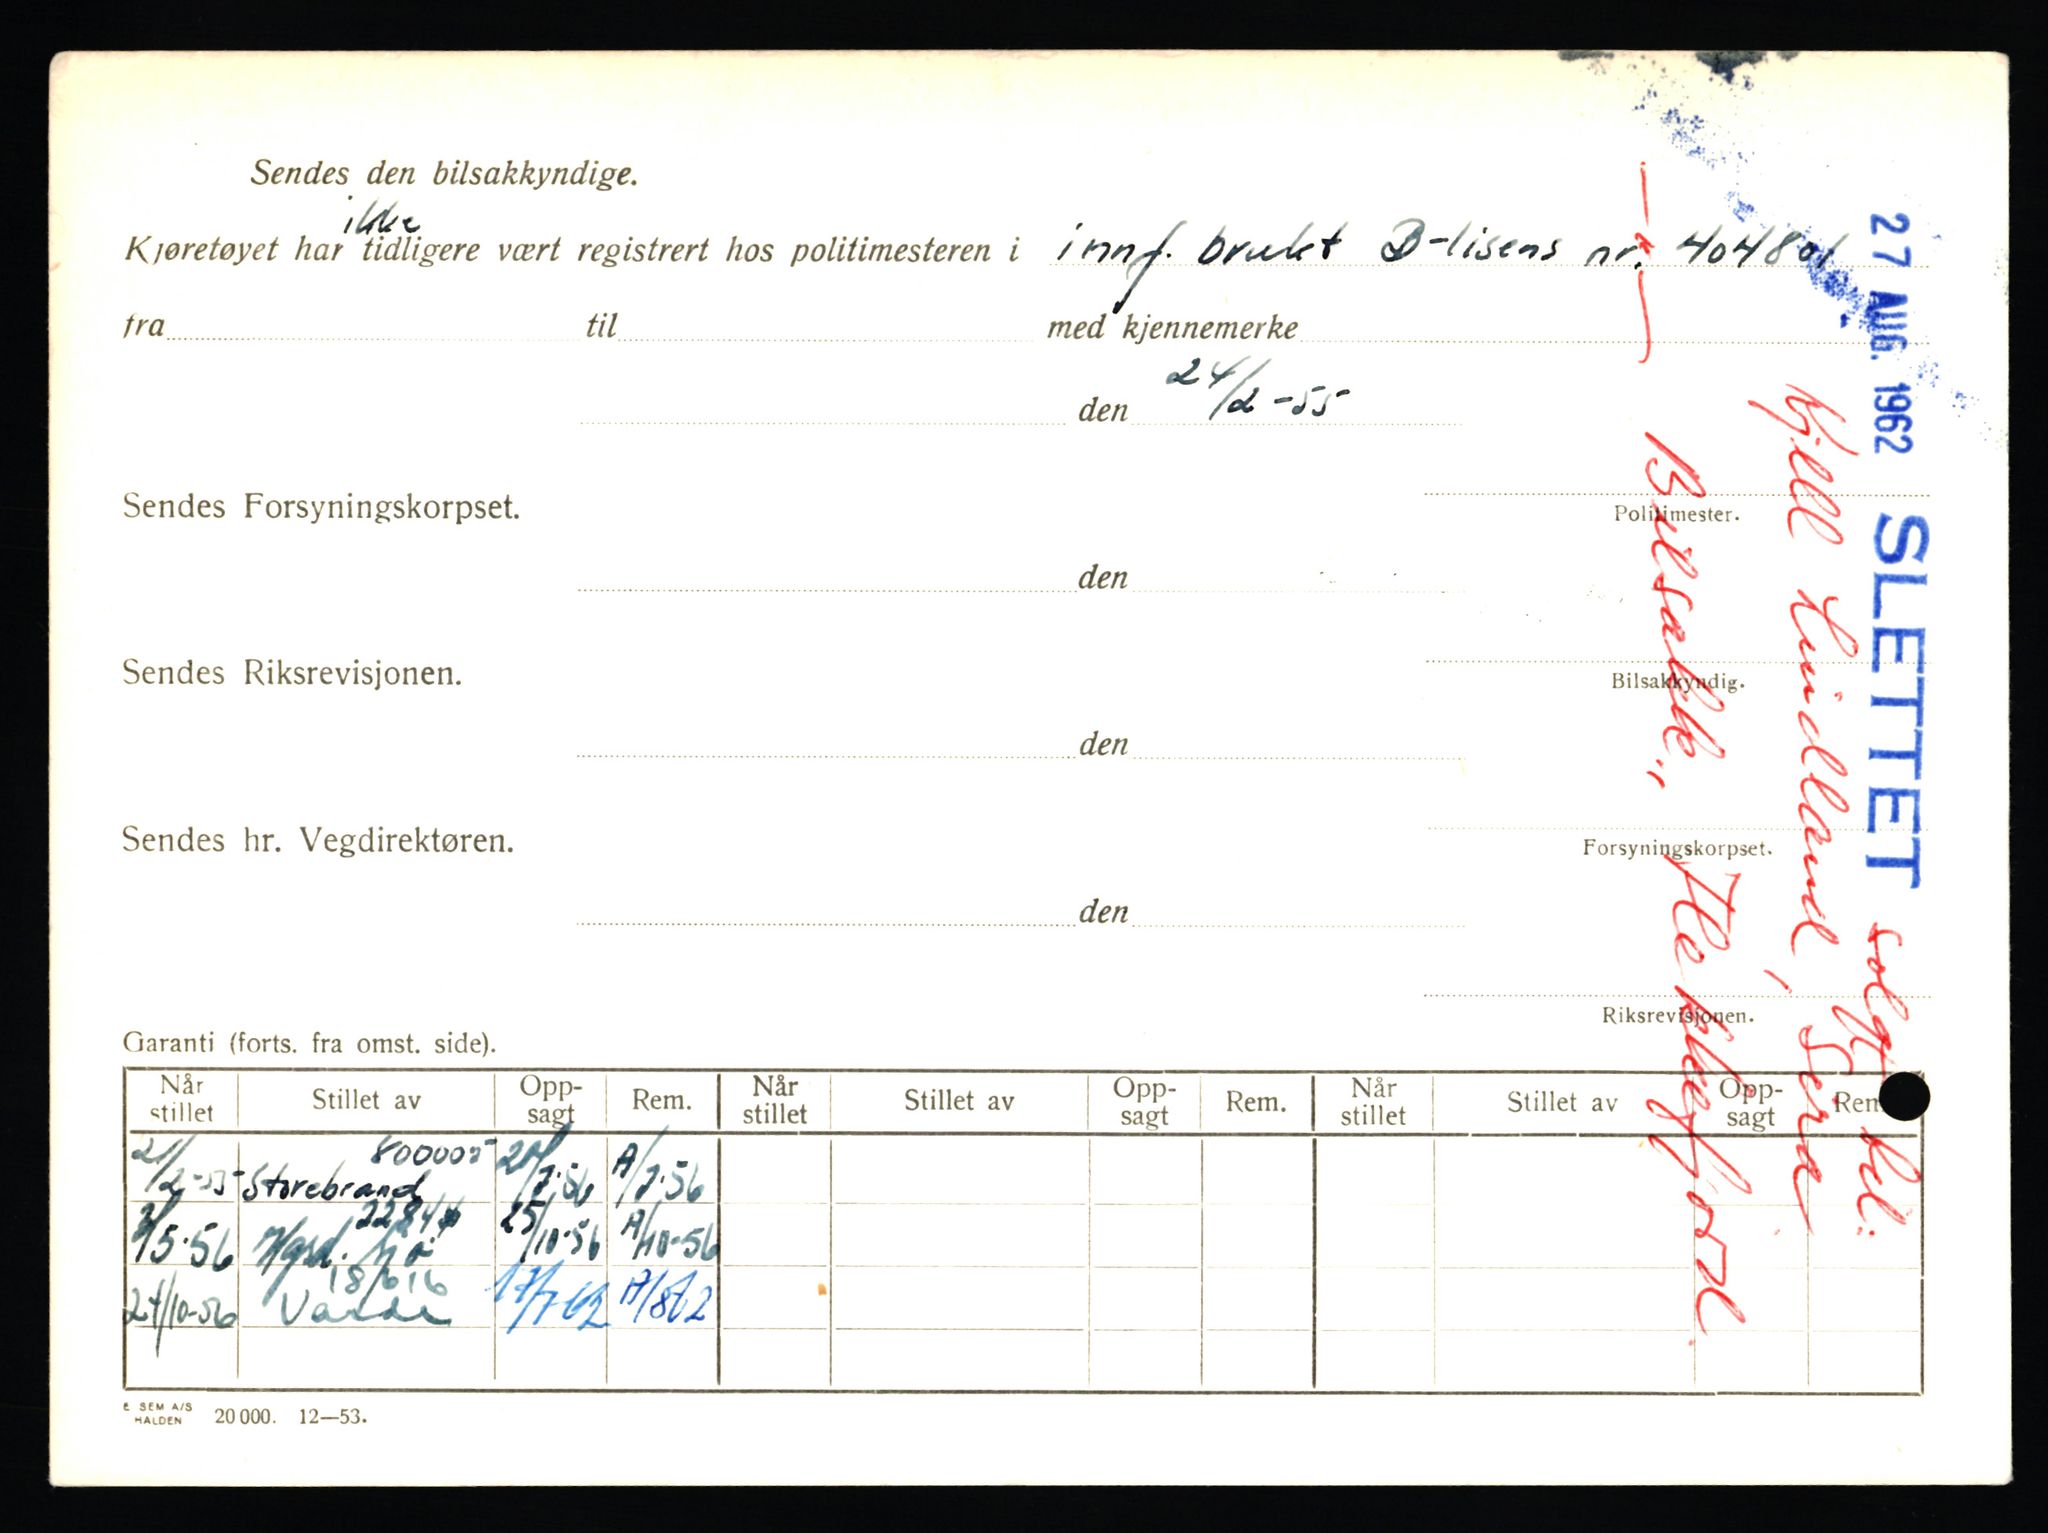 Sendes den bilsakkyndige.
ikke
Kjøretøyet har tidligere vært registrert hos politimesteren i innf. brukt B-lisens nr. 404801
fra til med kjennemerke
den 24/2-55
Sendes Forsyningskorpset.
Politimester.
den
Sendes Riksrevisjonen.
Bilsakkyndig.
den
Sendes hr. Vegdirektøren.
Forsyningskorpset.
den
Riksrevisjonen.
Garanti (forts. fra omst. side).
Når stillet Stillet av Opp-sagt Rem. Når stillet Stillet av Opp-sagt Rem. Når stillet Stillet av Opp-sagt Rem.
21/2-55 Storebrand 800005 20/2.56 A/2.56
/5.56 22844 25/10-56 A/10-56
24/10-56 18616 17/7-62 A/862
E SEM A/S
HALDEN 20 000. 12—53.
27 AUG. 1962 SLETTET solgt til:
Kjell Lindland, Sira